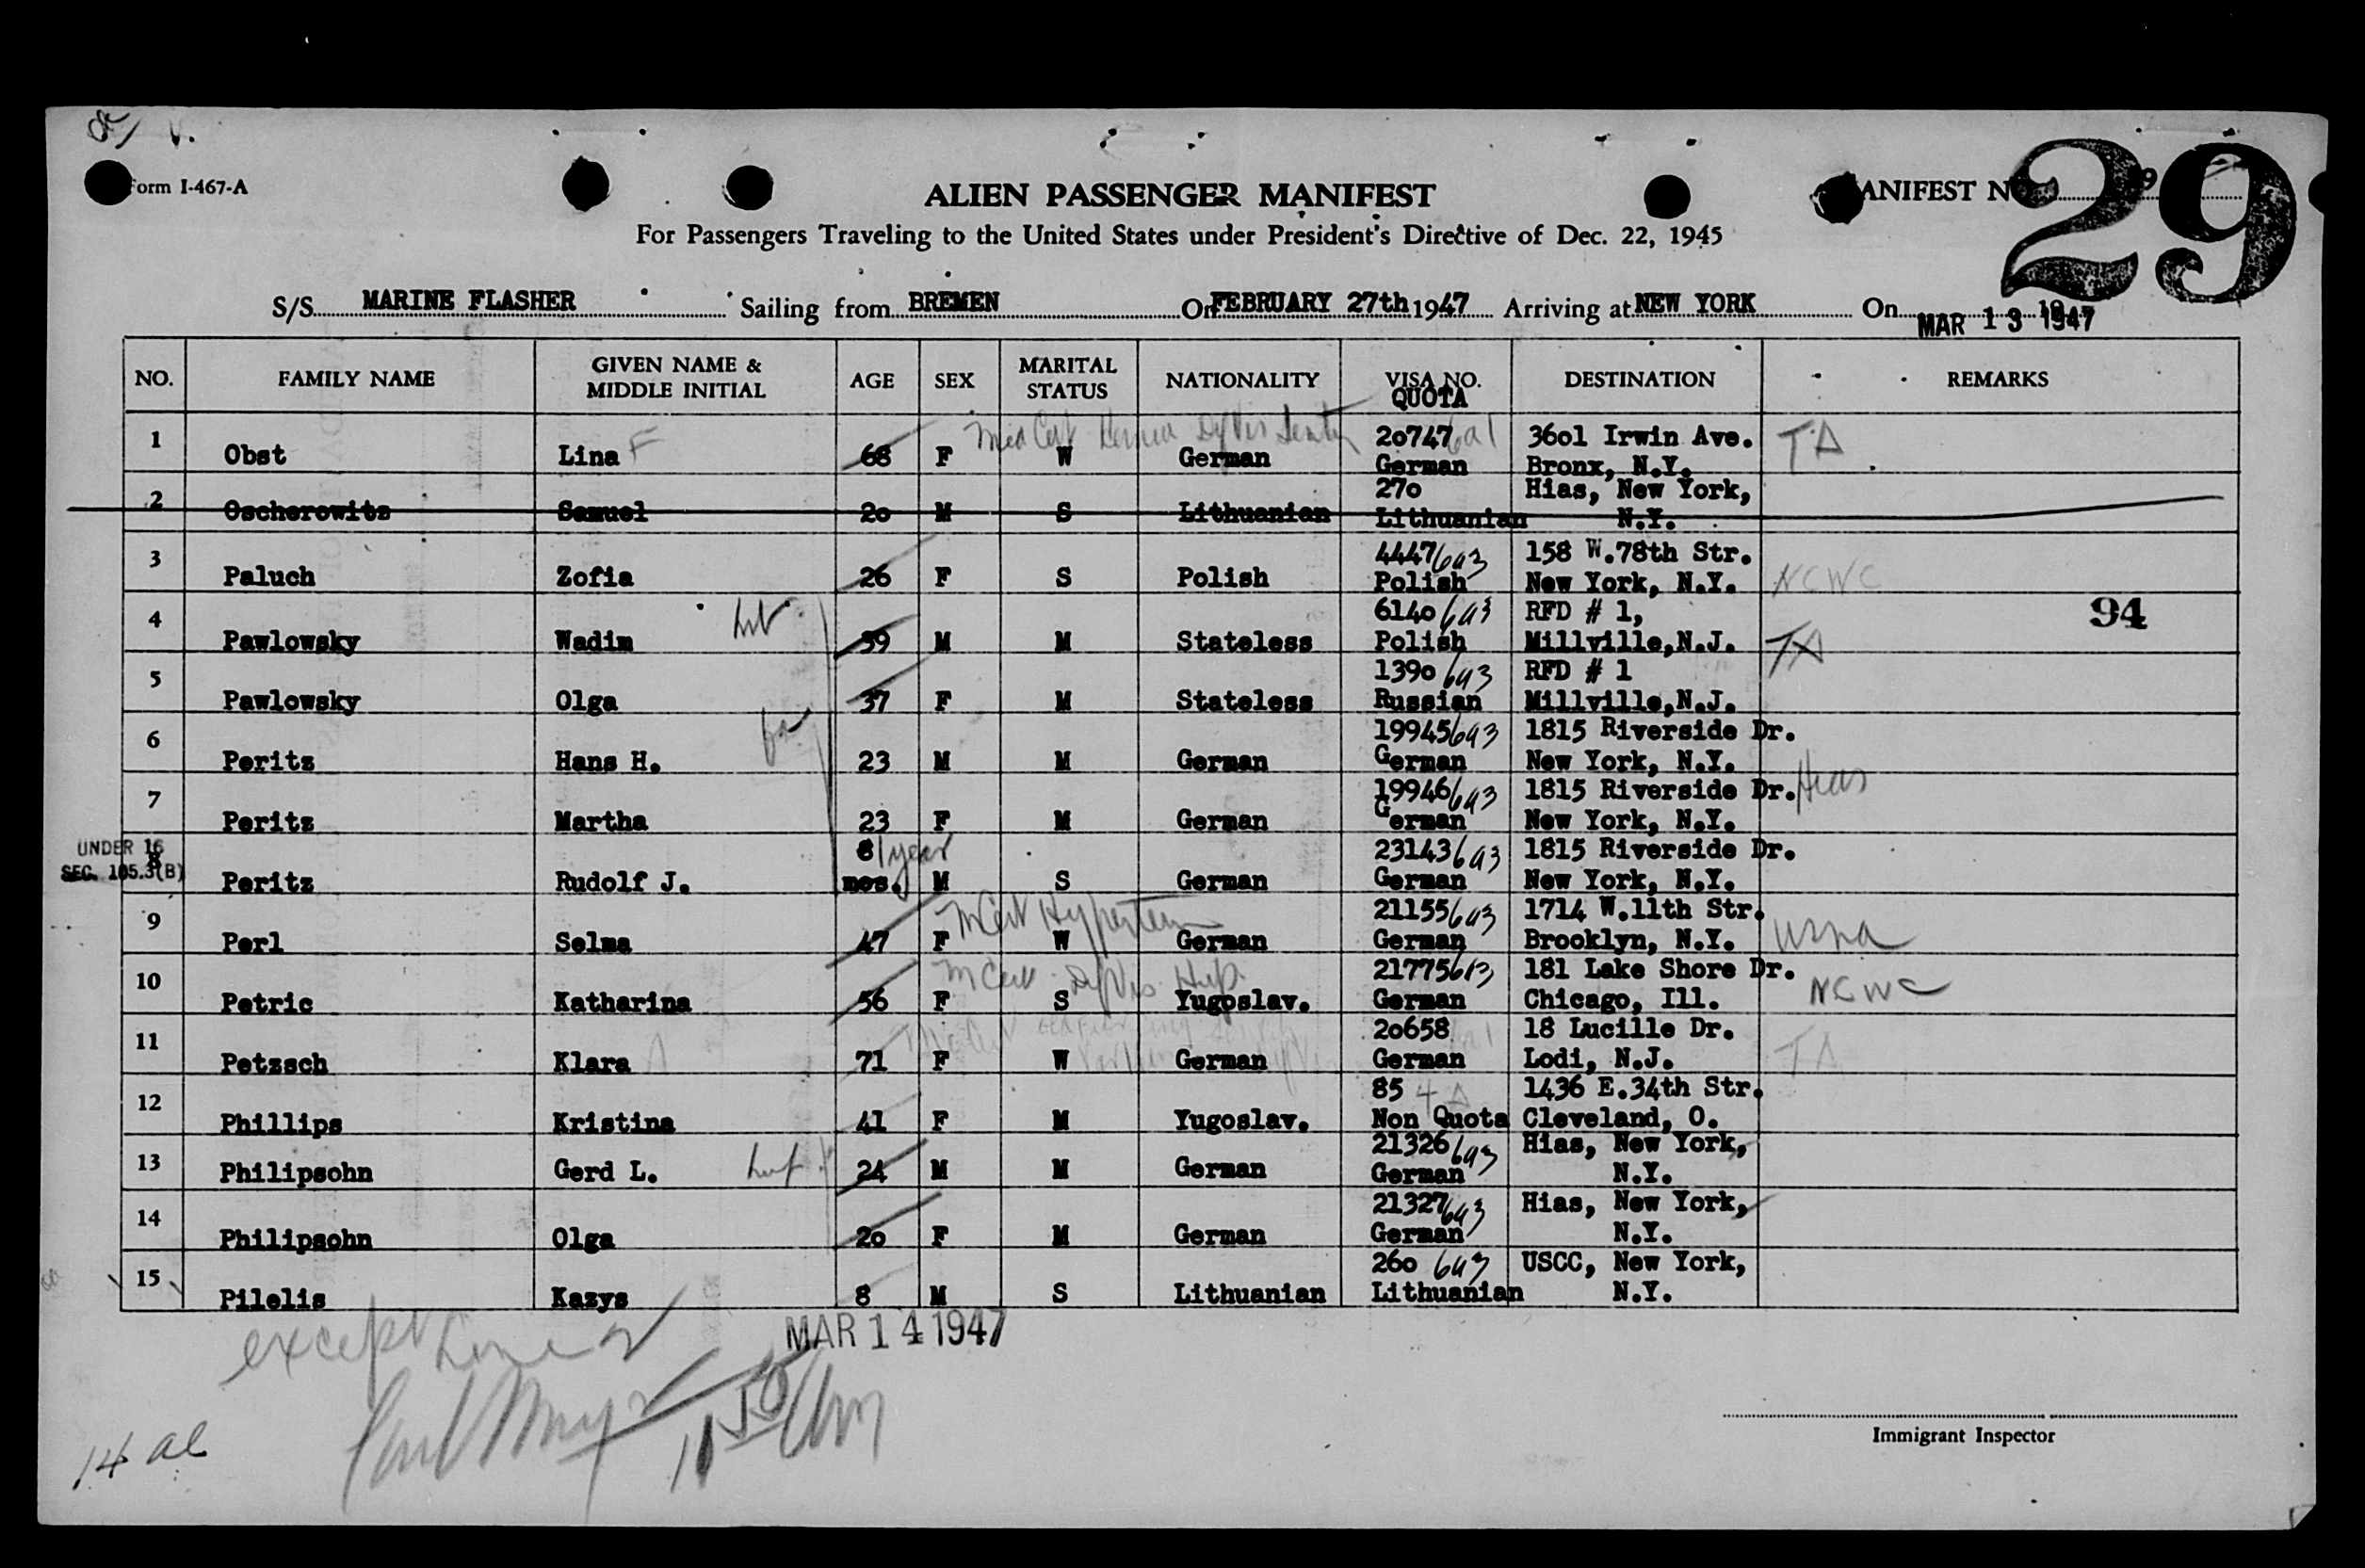 Form I-467-A
ALIEN PASSENGER MANIFEST
MANIFEST NO. 29
For Passengers Traveling to the United States under President's Directive of Dec. 22, 1945
S/S MARINE FLASHER Sailing from BREMEN On FEBRUARY 27th 1947 Arriving at NEW YORK On MAR 13 1947
NO. FAMILY NAME GIVEN NAME & MIDDLE INITIAL AGE SEX MARITAL STATUS NATIONALITY VISA NO. QUOTA DESTINATION REMARKS
1 Obst Lina F 68 F W German 20747 German 3601 Irwin Ave. Bronx, N.Y. TA
2 Oscherowitz Samuel 20 M S Lithuanian 270 Lithuanian Hias, New York, N.Y.
3 Paluch Zofia 26 F S Polish 4447 6a3 Polish 158 W.78th Str. New York, N.Y. NCWC
94
4 Pawlowsky Wadim 59 M M Stateless 6140 6a3 Polish RFD # 1, Millville,N.J. TA
5 Pawlowsky Olga 37 F M Stateless 1390 6a3 Russian RFD # 1 Millville,N.J.
6 Peritz Hans H. 23 M M German 19945 6a3 German 1815 Riverside Dr. New York, N.Y.
7 Peritz Martha 23 F M German 19946 6a3 German 1815 Riverside Dr. New York, N.Y. Hias
UNDER 16
SEC. 105.3(B)
8 Peritz Rudolf J. 8 mos. 1 year M S German 23143 6a3 German 1815 Riverside Dr. New York, N.Y.
9 Perl Selma 47 F W German 21155 6a3 German 1714 W.11th Str. Brooklyn, N.Y. USNA
10 Petric Katharina 56 F S Yugoslav. 21775 6a3 German 181 Lake Shore Dr. Chicago, Ill. NCWC
11 Petzsch Klara 71 F W German 20658 German 18 Lucille Dr. Lodi, N.J. TA
12 Phillips Kristina 41 F M Yugoslav. 85 4A Non Quota 1436 E.34th Str. Cleveland, O.
13 Philipsohn Gerd L. 24 M M German 21326 6a3 German Hias, New York, N.Y.
14 Philipsohn Olga 20 F M German 21327 6a3 German Hias, New York, N.Y.
15 Pilelis Kazys 8 M S Lithuanian 260 6a3 Lithuanian USCC, New York, N.Y.
except Line 2
MAR 14 1947
11 50 Am
14 al
Immigrant Inspector